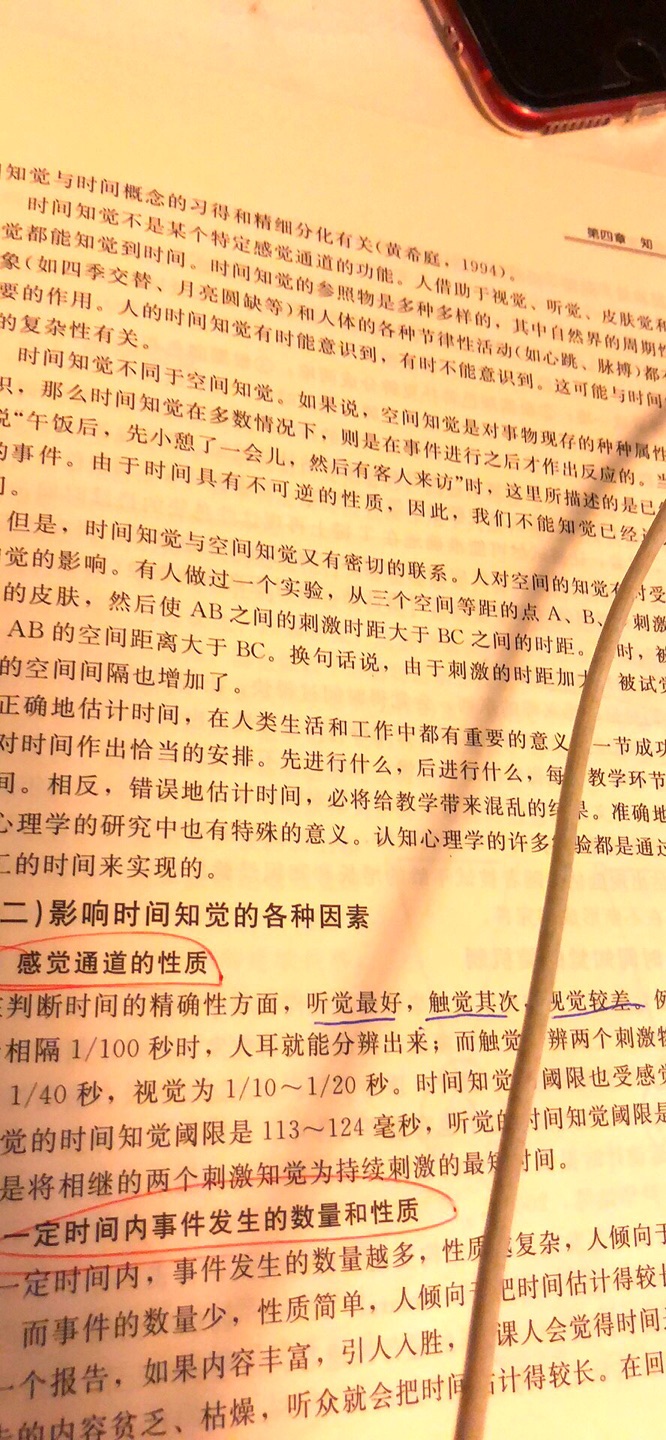 知觉与时间概念的习得和精细分化有关(黄希庭，1994)。
第四章 知
时间知觉不是某个特定感觉通道的功能。人借助于视觉、听觉、皮肤觉和
觉都能知觉到时间。时间知觉的参照物是多种多样的，其中自然界的周期性
象(如四季交替、月亮圆缺等)和人体的各种节律性活动(如心跳、脉搏)都
要的作用。人的时间知觉有时能意识到，有时不能意识到。这可能与时间
的复杂性有关。
时间知觉不同于空间知觉。如果说，空间知觉是对事物现存的种种属性
识，那么时间知觉在多数情况下，则是在事件进行之后才作出反应的。当
说“午饭后，先小憩了一会儿，然后有客人来访”时，这里所描述的是已
的事件。由于时间具有不可逆的性质，因此，我们不能知觉已经
但是，时间知觉与空间知觉又有密切的联系。人对空间的知觉 时受
觉的影响。有人做过一个实验，从三个空间等距的点 A、B、 刺激
的皮肤，然后使 AB 之间的刺激时距大于 BC 之间的时距。 时，被
AB 的空间距离大于 BC。换句话说，由于刺激的时距加 被试觉
的空间间隔也增加了。
正确地估计时间，在人类生活和工作中都有重要的意义 一节成功
对时间作出恰当的安排。先进行什么，后进行什么，每 教学环节
间。相反，错误地估计时间，必将给教学带来混乱的结果。准确地
心理学的研究中也有特殊的意义。认知心理学的许多 验都是通过
的时间来实现的。
二)影响时间知觉的各种因素
感觉通道的性质
判断时间的精确性方面，听觉最好，触觉其次，视觉较差。例
相隔 1/100 秒时，人耳就能分辨出来；而触觉 辨两个刺激物
1/40 秒，视觉为 1/10～1/20 秒。时间知觉 阈限也受感觉
觉的时间知觉阈限是 113～124 毫秒，听觉的时间知觉阈限是
是将相继的两个刺激知觉为持续刺激的最短时间。
一定时间内事件发生的数量和性质
一定时间内，事件发生的数量越多，性质越复杂，人倾向于
而事件的数量少，性质简单，人倾向于把时间估计得较长
一个报告，如果内容丰富，引人入胜， 课人会觉得时间
的内容贫乏、枯燥，听众就会把时间估计得较长。在回